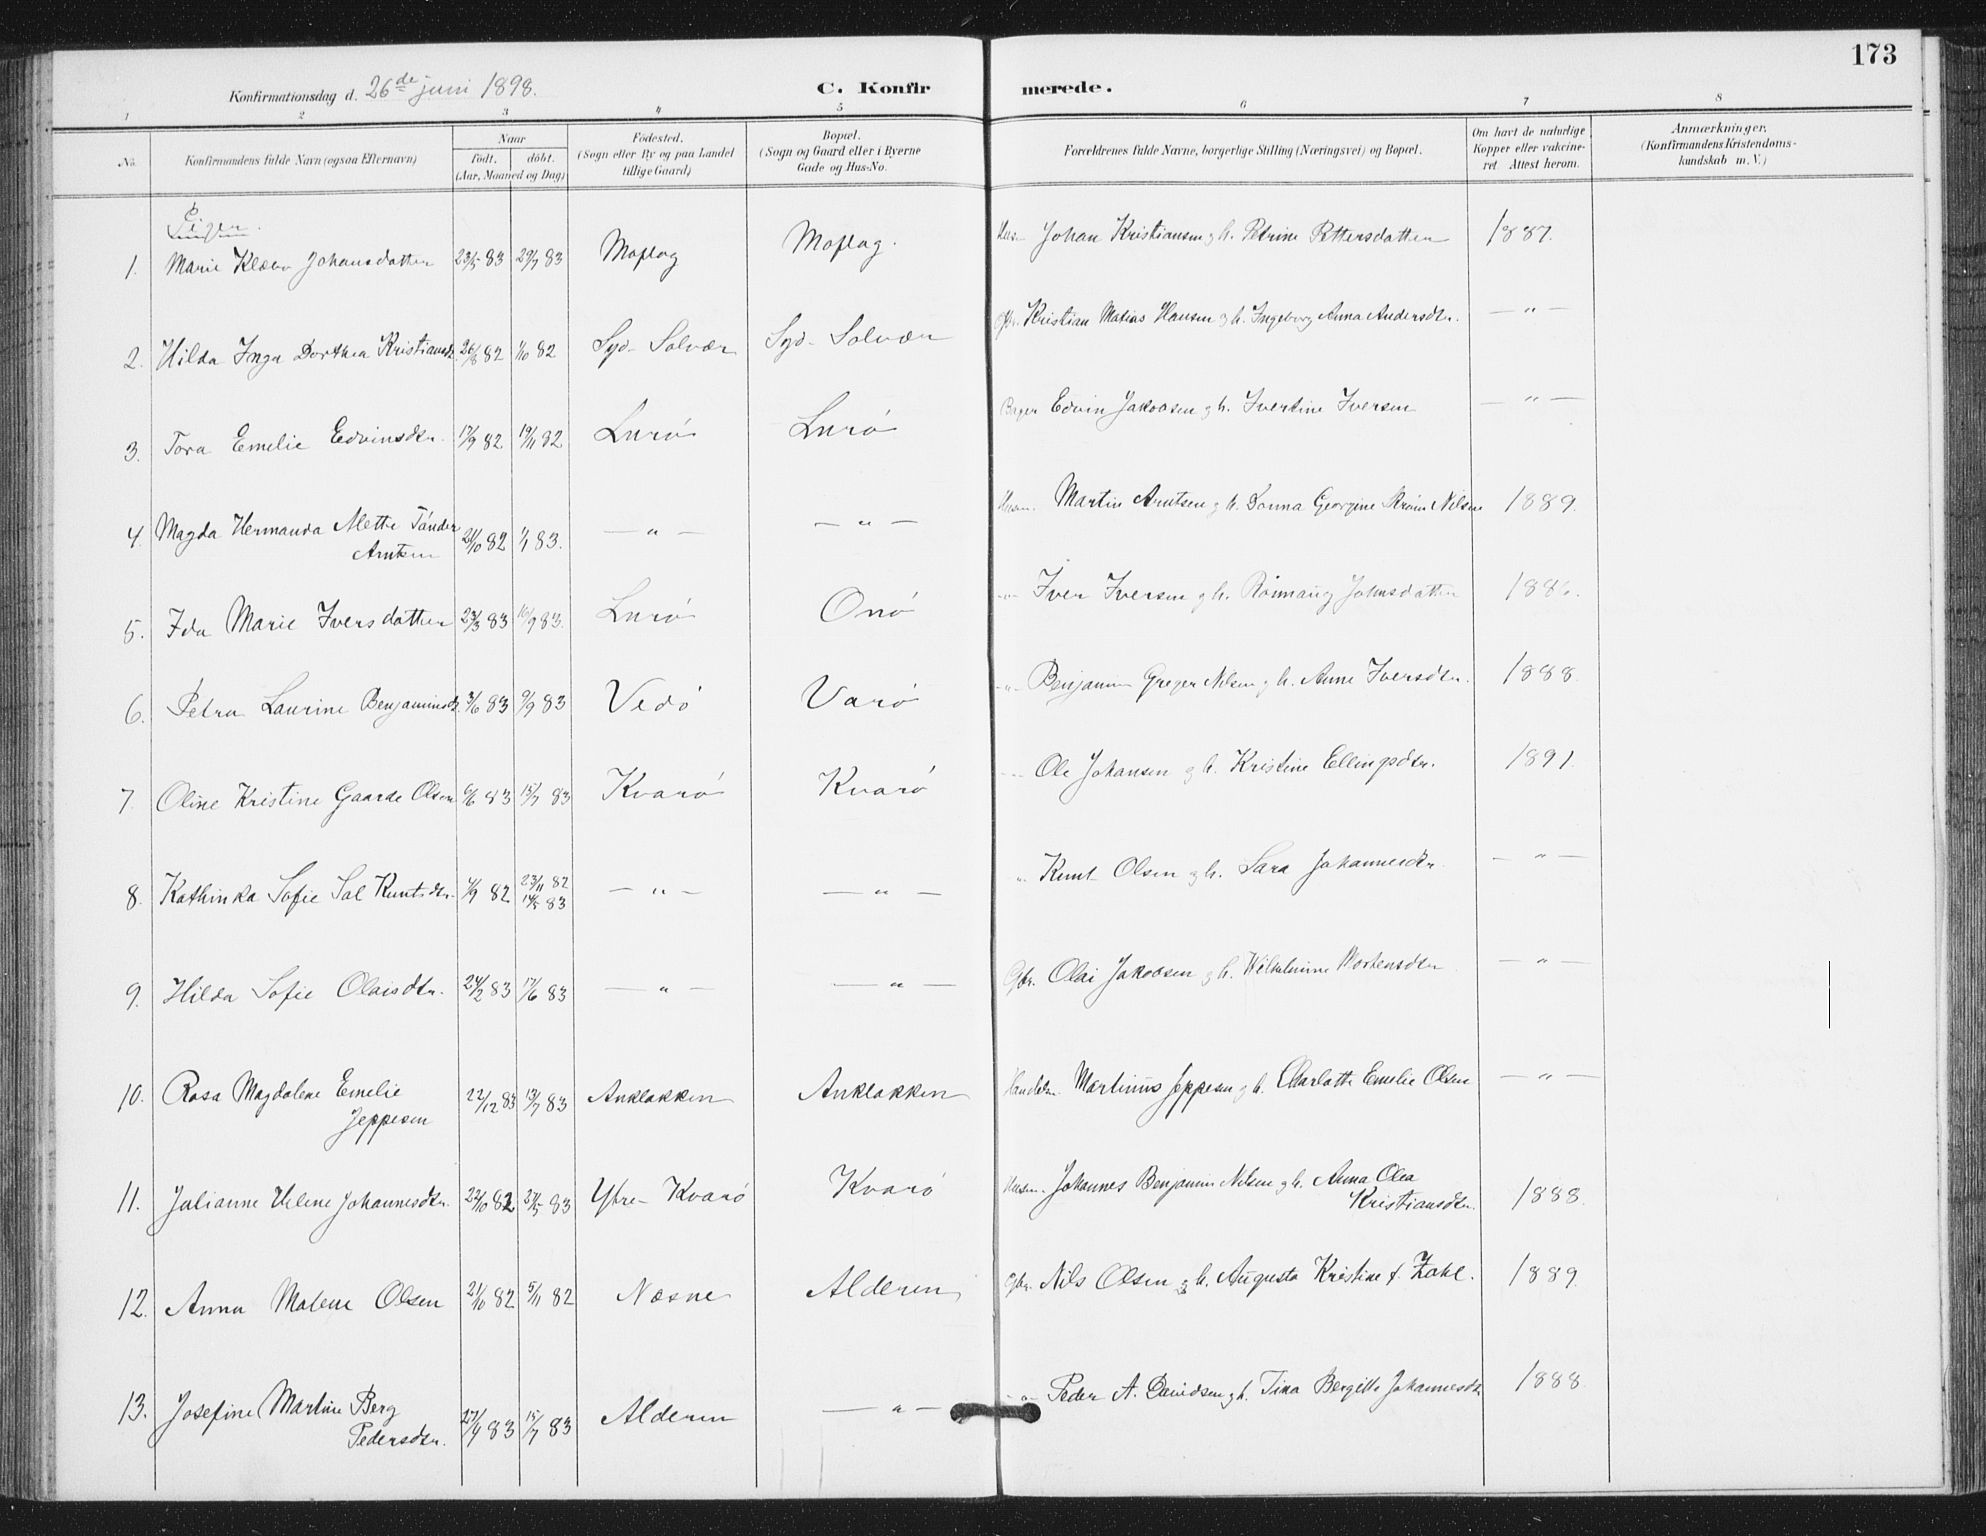 173
Konfirmationsdag d. 26de juni 1898. C. Konfirmerede.
1 2 3 4 5 6 7 8
No. Konfirmandens fulde Navn (ogsaa Efternavn) Naar født. døbt. (Aar, Maaned og Dag) Födested. (Sogn eller By og paa Landet tillige Gaard) Bopæl. (Sogn og Gaard eller i Byerne Gade og Hus-No. Forældrenes fulde Navne, borgerlige Stilling (Næringsvei) og Bopæl. Om havt de naturlige Kopper eller vakcineret. Attest herom. Anmærkninger. (Konfirmandens Kristendomskundskab m. V.)
Piger.
1. Marie Klæbo Johansdatter 23/5 83 29/7 83 Moflag Moflag. Husm. Johan Kristiansen og h. Petrine Pettersdatter 1887.
2. Hilda Inga Dorthea Kristiansd. 26/8 82 1/10 82 Syd-Solvær Syd-Solvær Gbr. Kristian Matias Hansen og h. Ingeborg Anna Andersdtr. — " —
3. Tora Emelie Edvinsdtr. 17/9 82 19/11 82 Lurö Lurö Bager Edvin Jakobsen og h. Ivertine Iversen — " —
4. Magda Hermanda Mette Tánder Arntsen 21/10 82 1/1 83. — " — — " — Husm. Martin Arntsen og h. Georgine Nilsen 1889.
5. Ida Marie Iversdatter 23/3 83 16/9 83. Lurö Onö - " - Iver Iversen og h. Johnsdatter
6. Petra Laurine Benjaminsd. 3/6 83 9/9 83 Vedö Varö - " - Benjamin Greger Nilsen og h. Anne Iversdtr. 1888.
7. Oline Kristine Gaarde Olsen 6/6 83 15/7 83 Kvarö Kvarö - " - Ole Johansen og h. Kristine Ellingsdtr. 1891.
8. Kathinka Sofie Sal Knutsdtr. 4/9 82 23/11 82 14/5 83 — " — — " — " Knut Olsen og h. Sara Johannesdtr. — " —
9. Hilda Sofie Olaisdtr. 24/2 83 17/6 83 — " — — " — Gbr. Olai Jakobsen og h. Wilhelmine Mortensdtr — " —
10. Rosa Magdalene Emelie Jeppesen 22/12 83 13/7 83 Anklakken Anklakken Handelsm. Martinus Jeppesen og h. Charlotte Emelie Olsen — " —
11. Julianne Helene Johannesdtr. 22/10 82 27/5 83 Ytre-Kvarö Kvarö Husm. Johannes Benjamin Nilsen og h. Anna Olea Kristiansdtr. 1888.
12. Anna Malene Olsen 21/10 82 5/11 82 Næsne Alderen Gbr. Nils Olsen og h. Augusta Kristine f. Zahl. 1889.
13. Josefine Martine Berg Pedersdtr. 27/4 83 15/7 83 Alderen — " — - " - Peder A. Davidsen og h. Tina Bergitte Johannesdtr 1888.